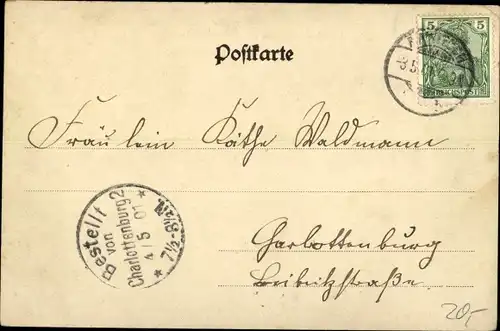 Postkarte
5 5
REICHSPOST
Fräulein Käthe Waldmann
Bestellt
von
Charlottenburg 2
4/5 01
* 7½-8½N. *
Charlottenburg
Leibnitzstraße.
20,-